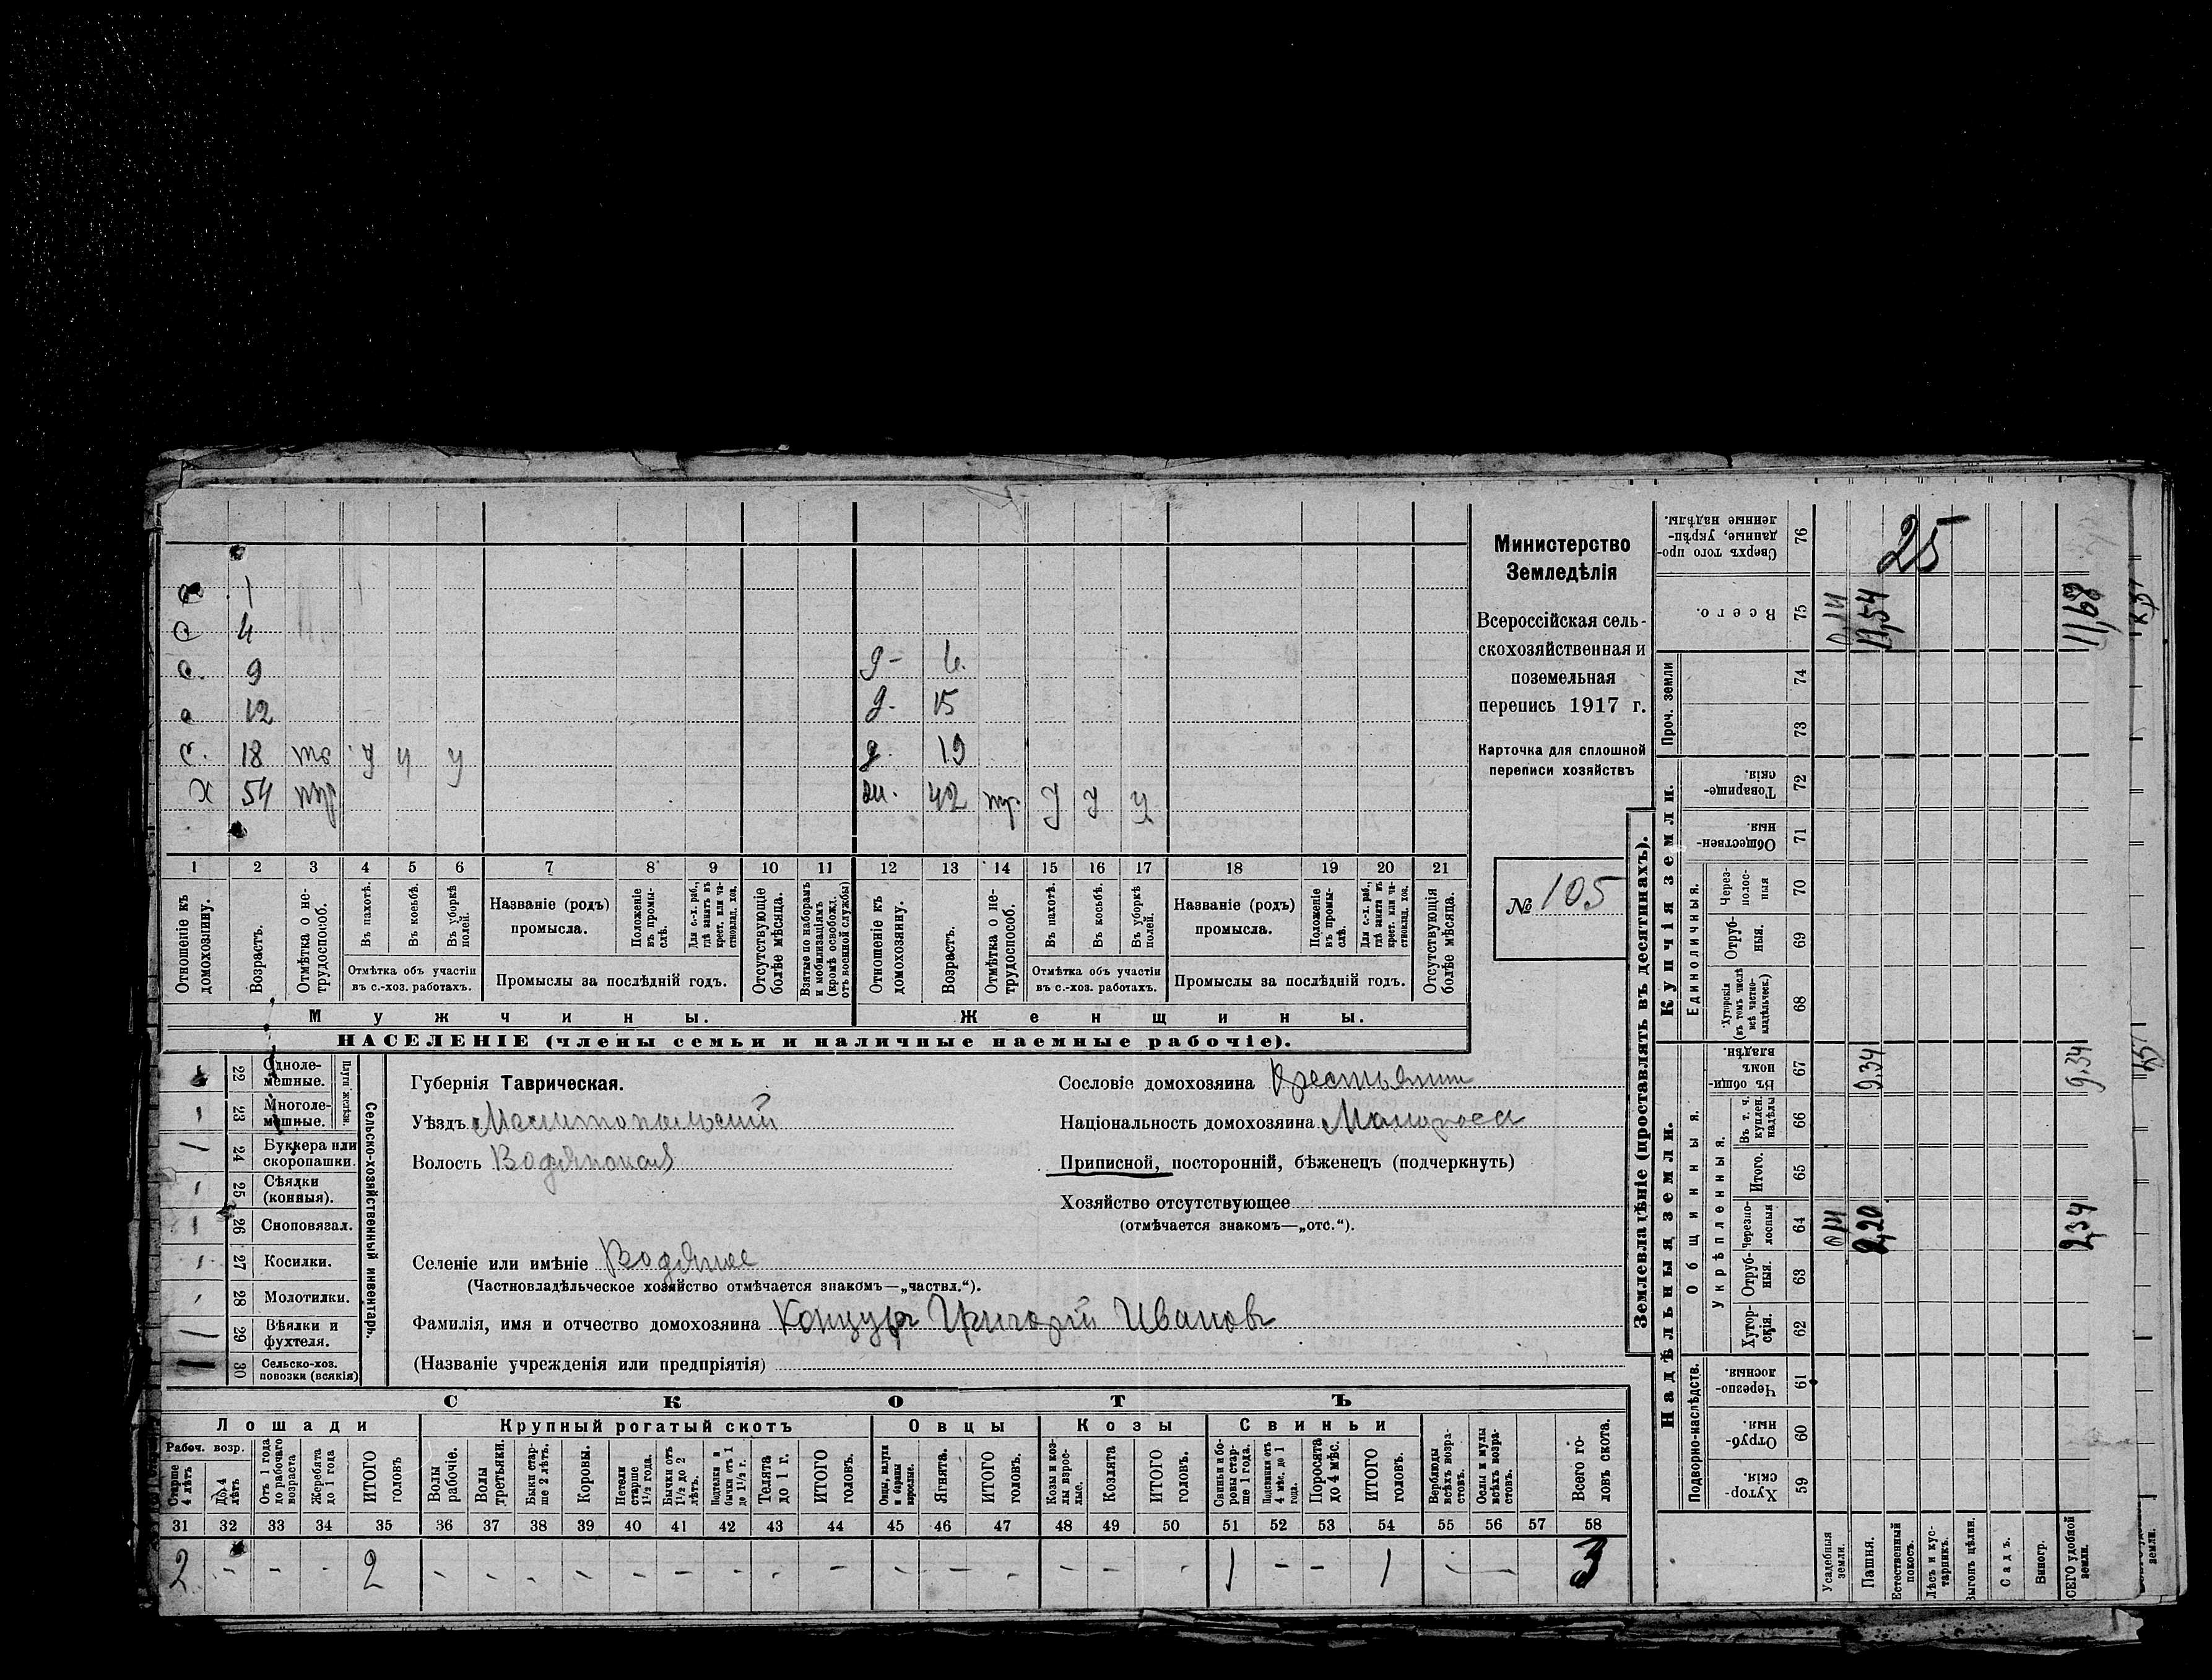 с 1
с 4
с. 9
с 12
с. 18 тр у у у
х 54 тр
д- 6.
д. 15
д. 19
ж. 42 тр. у у у
1 2 3 4 5 6 7 8 9 10 11 12 13 14 15 16 17 18 19 20 21
Отношеніе къ домохозяину.
Возрастъ.
Отмѣтка о не-трудоспособ.
Въ пахотѣ.
Въ косьбѣ.
Въ уборкѣ полей.
Отмѣтка объ участіи въ с.-хоз. работахъ.
Названіе (родъ) промысла.
Положеніе въ промы-слѣ.
Для с.-х. раб., гдѣ занятъ въ крест. или ча-стновлад. хоз.
Промыслы за послѣдній годъ.
Отсутствующіе болѣе мѣсяца.
Взятые по наборамъ и мобилизаціямъ (кромѣ освобожд. отъ военной службы)
Отношеніе къ домохозяину.
Возрастъ.
Отмѣтка о не-трудоспособ.
Въ пахотѣ.
Въ косьбѣ.
Въ уборкѣ полей.
Отмѣтка объ участіи въ с.-хоз. работахъ.
Названіе (родъ) промысла.
Положеніе въ промы-слѣ.
Для с.-х. раб., гдѣ занята въ крест. или ча-стновлад. хоз.
Промыслы за послѣдній годъ.
Отсутствующія болѣе мѣсяца.
Мужчины. Женщины.
НАСЕЛЕНІЕ (члены семьи и наличные наемные рабочіе).
Министерство
Земледѣлія
Всероссійская сель-
скохозяйственная и
поземельная
перепись 1917 г.
Карточка для сплошной
переписи хозяйствъ
№ 105
22 Одноле-мешные.
23 Многоле-мешные.
Плуги желѣзн.
24 Буккера или скоропашки.
25 Сѣялки (конныя).
26 Сноповязал.
27 Косилки.
28 Молотилки.
29 Вѣялки и фухтеля.
30 Сельско-хоз. повозки (всякія)
Сельско-хозяйственный инвентарь.
Губернія Таврическая.
Уѣздъ Мелитопольскій
Волость Водянская
Селеніе или имѣніе Водяное
(Частновладѣльческое хозяйство отмѣчается знакомъ—„частвл.“).
Фамилія, имя и отчество домохозяина Концуръ Григорій Ивановъ
(Названіе учрежденія или предпріятія)
Сословіе домохозяина Крестьянин
Національность домохозяина Малоросс
Приписной, посторонній, бѣженецъ (подчеркнуть)
Хозяйство отсутствующее
(отмѣчается знакомъ—„отс.“).
СКОТЪ
Лошади Крупный рогатый скотъ Овцы Козы Свиньи
Рабоч. возр.
Старше 4 лѣтъ
До 4 лѣтъ
Отъ 1 года до рабочаго возраста
Жеребята до 1 года
ИТОГО головъ
Волы рабочіе.
Волы третьяки.
Быки стар-ше 2 лѣтъ.
Коровы.
Нетели старше 1½ года.
Бычки отъ 1½ до 2 лѣтъ.
Подтелки и бычки отъ 1 до 1½ г.
Телята до 1 г.
ИТОГО головъ.
Овцы, валухи и бараны взрослые.
Ягнята.
ИТОГО головъ.
Козы и коз-лы взрос-лые.
Козлята
ИТОГО головъ.
Свиньи и бо-ровы стар-ше 1 года.
Подсвинки отъ 4 мѣс. до 1 года.
Поросята до 4 мѣс.
ИТОГО головъ.
Верблюды всѣхъ возра-стовъ.
Ослы и мулы всѣхъ возра-стовъ.
Всего го-ловъ скота.
31 32 33 34 35 36 37 38 39 40 41 42 43 44 45 46 47 48 49 50 51 52 53 54 55 56 57 58
2 - - - 2 - - - - - - - - - - - - - - - 1 - - 1 - - 3
Землевладѣніе (проставлять въ десятинахъ).
Надѣльныя земли. Купчія земли. Проч. земли
Подворно-наслѣдств.
Общинныя.
Укрѣпленныя.
Единоличныя.
Хутор-скія. 59
Отруб-ныя. 60
Черезпо-лосныя. 61
Хутор-скія. 62
Отруб-ныя. 63
Черезпо-лосныя 64
Итого. 65
Въ т. ч. куплен. надѣлы 66
Въ общин-номъ владѣн. 67
Хуторскія (въ томъ числѣ всѣ частно-владѣльческ.) 68
Отруб-ныя. 69
Через-полос-ныя 70
Обществен-ныя. 71
Товарище-скія. 72
73
74
Всего. 75
Сверхъ того про-данные, укрѣп-ленные надѣлы. 76
Усадебныя земли. 0,14 0,14
Пашня. 2,20 9.34 11,54
25
Естественный покосъ.
Лѣсъ и кус-тарникъ.
Выгонъ цѣлин.
Садъ.
Виногр.
ВСЕГО удобной земли. 2,34 9,34 11,68
земли.